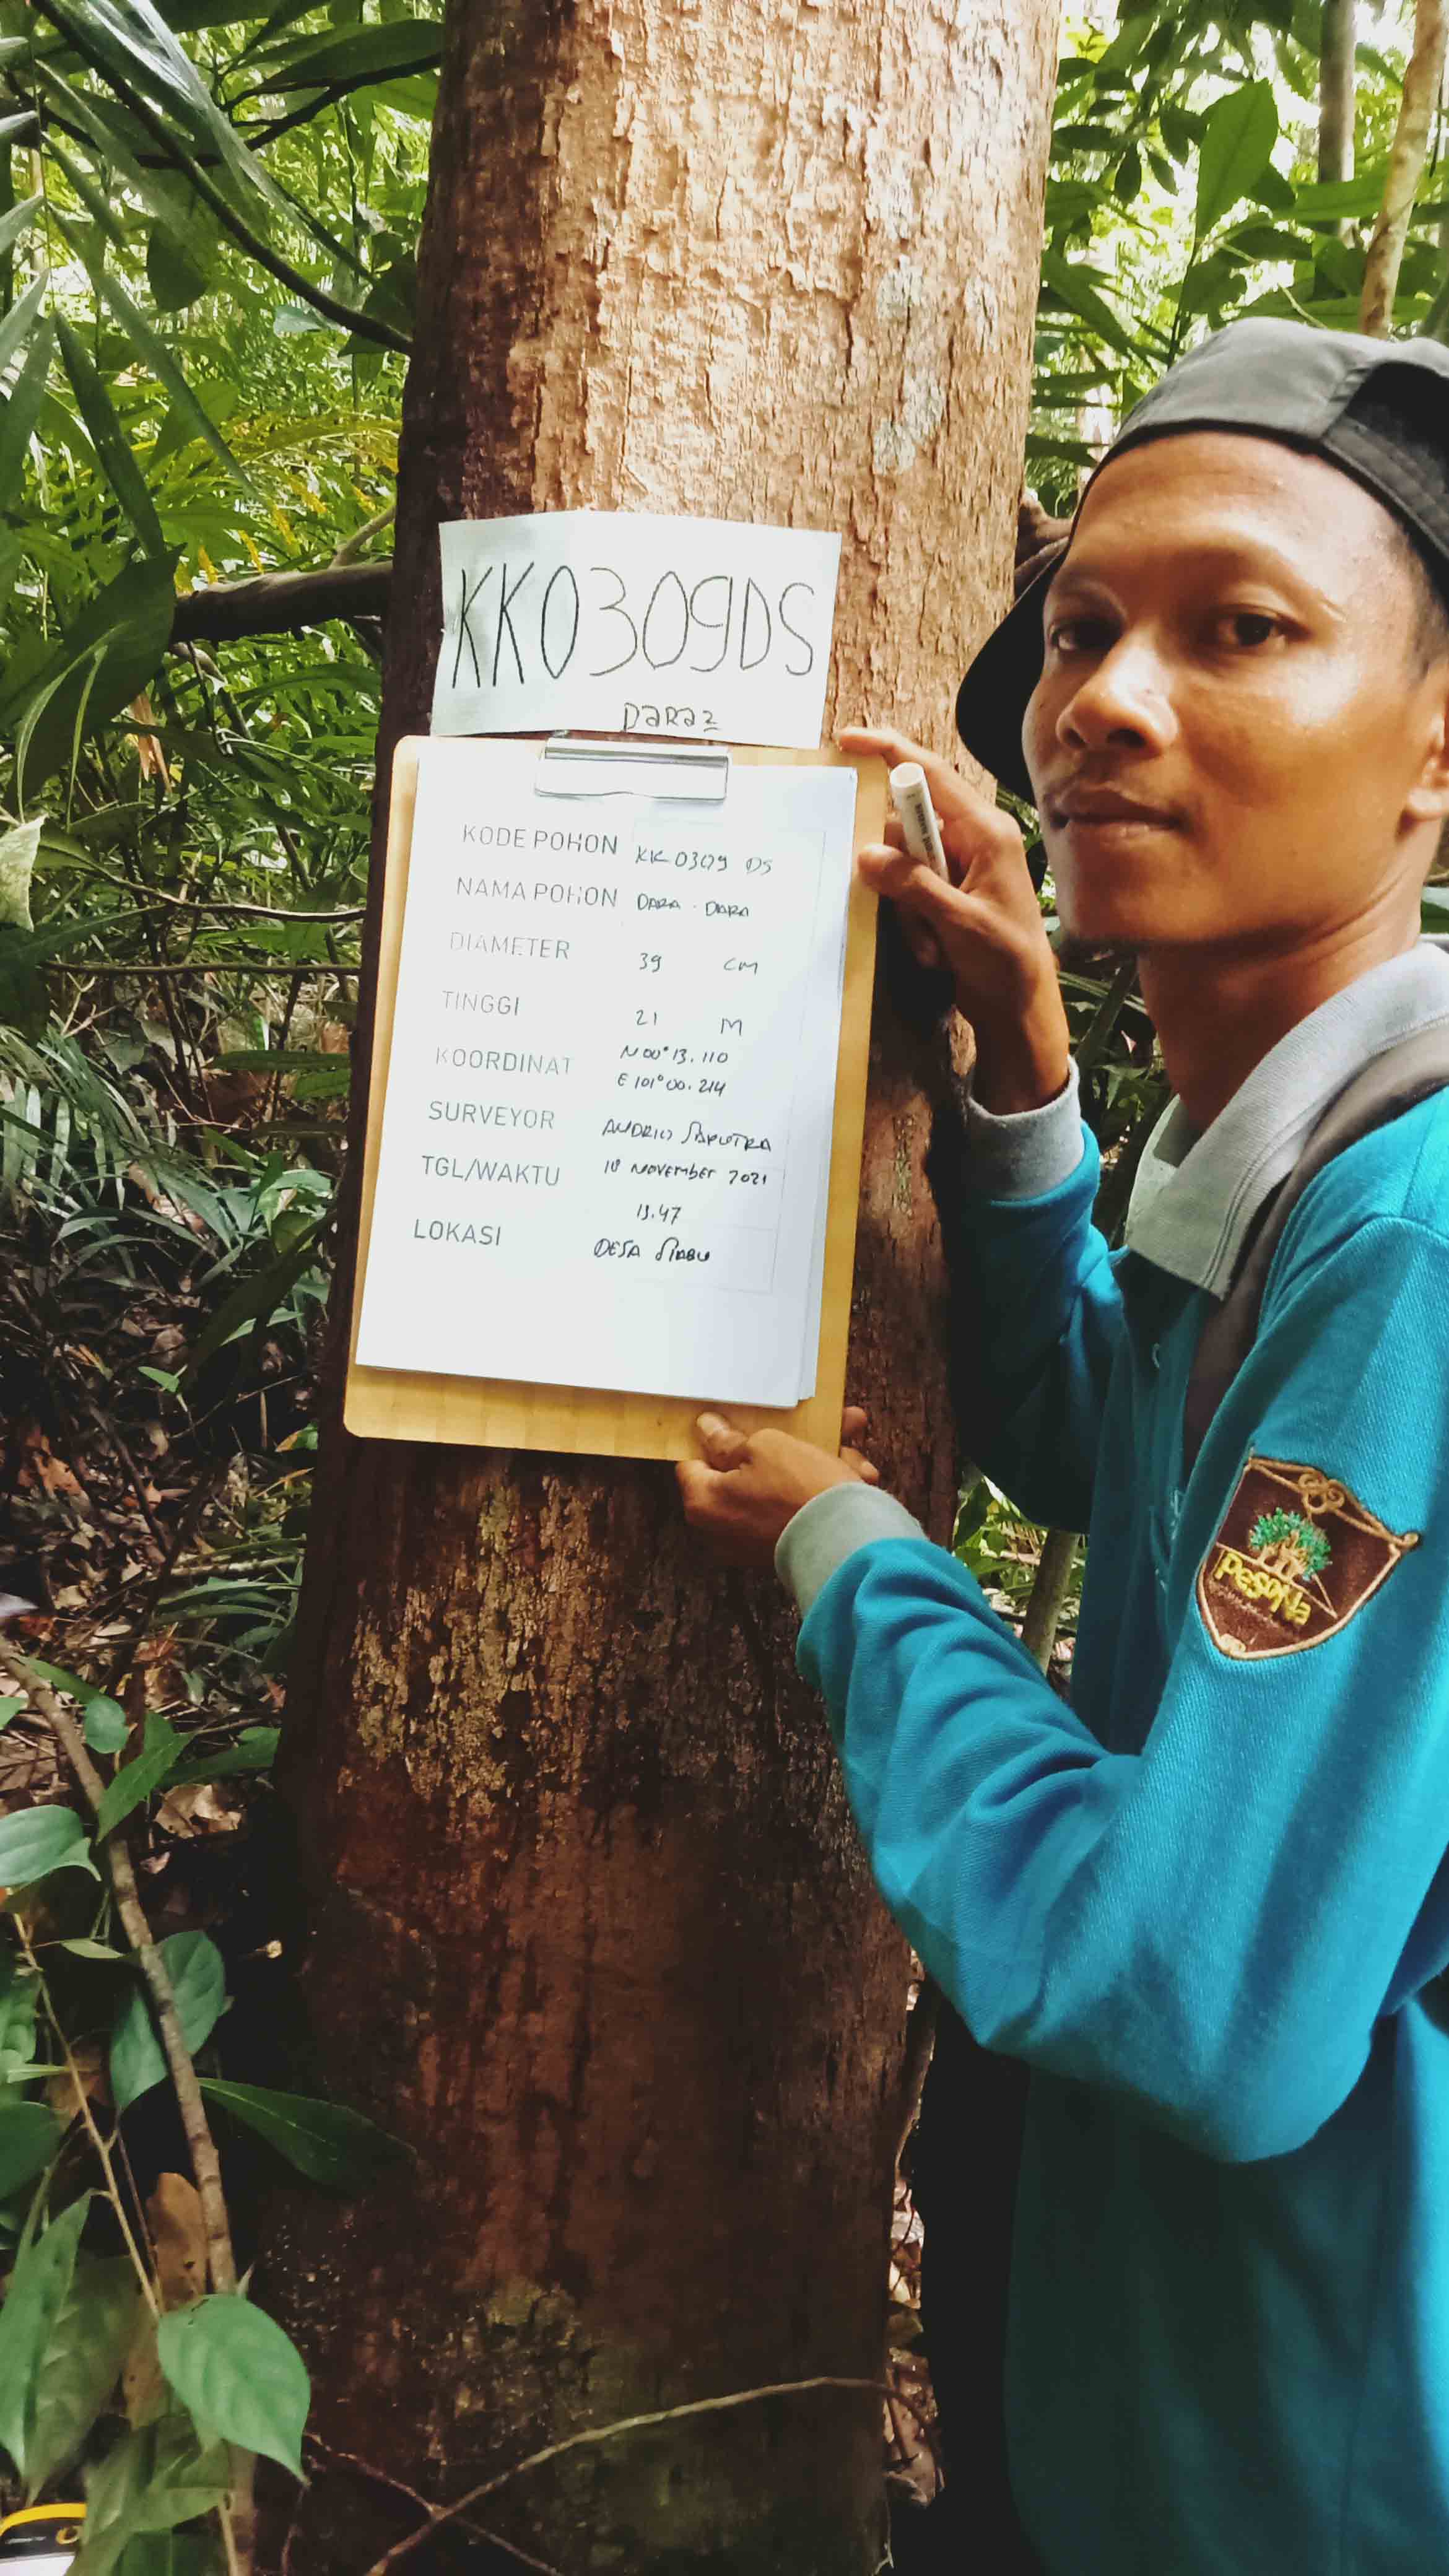 KK0309DS
DaRa2
KODE POHON KK 0309 DS
NAMA POHON DARA - DARA
DIAMETER 39 CM
TINGGI 21 M
KOORDINAT N 00° 13. 110
E 101° 00. 214
SURVEYOR ANDRIO SAPUTRA
TGL/WAKTU 10 NOVEMBER 2021
13.47
LOKASI DESA SIABU
PesoNa